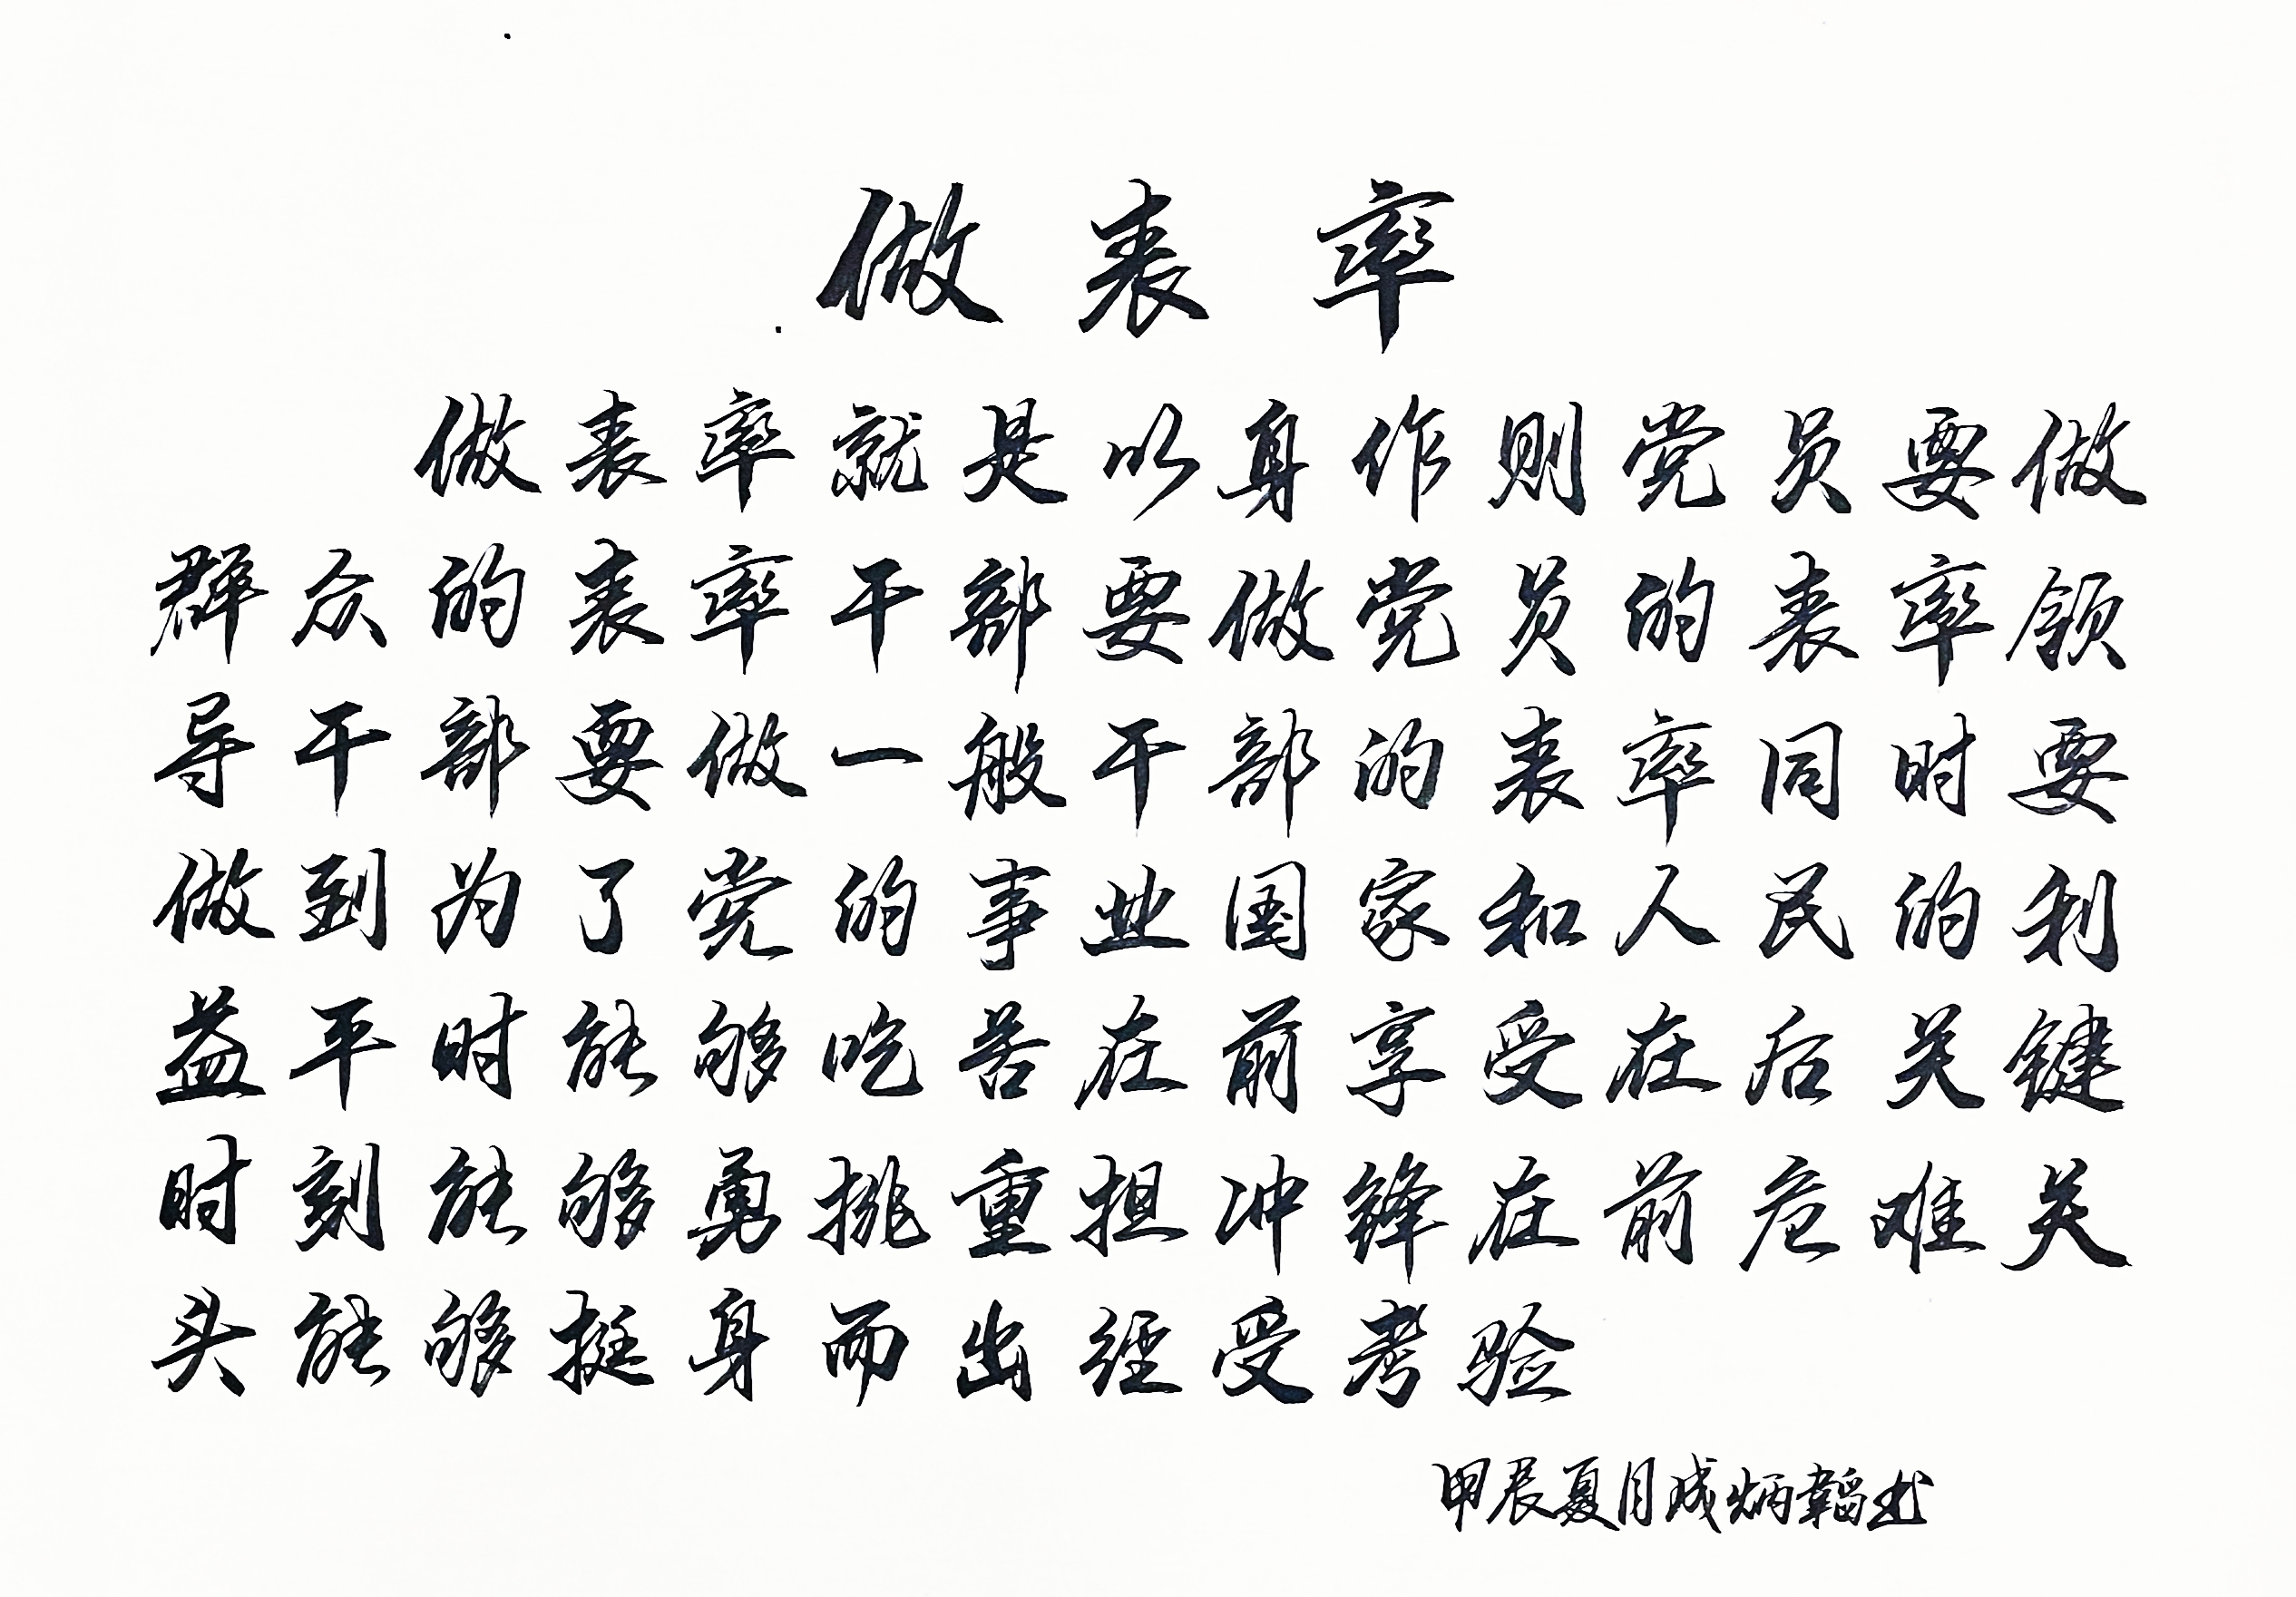 做表率
做表率就是以身作则党员要做
群众的表率干部要做党员的表率领
导干部要做一般干部的表率同时要
做到为了党的事业国家和人民的利
益平时能够吃苦在前享受在后关键
时刻能够勇挑重担冲锋在前危难关
头能够挺身而出经受考验
甲辰夏月成炳韜书